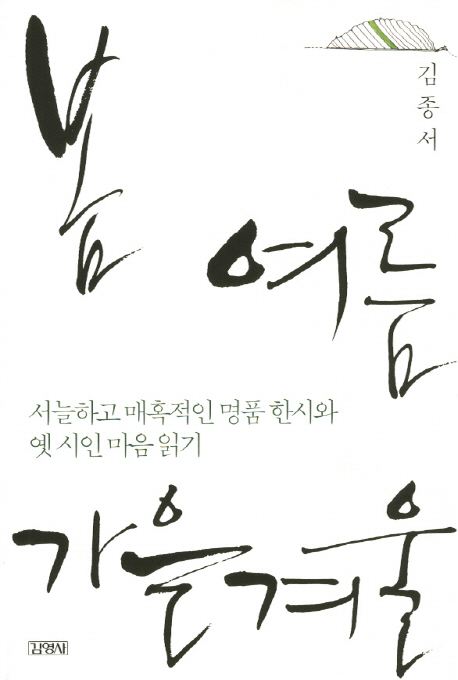 김종서
봄
여름
서늘하고 매혹적인 명품 한시와
옛 시인 마음 읽기
가을겨울
김영사